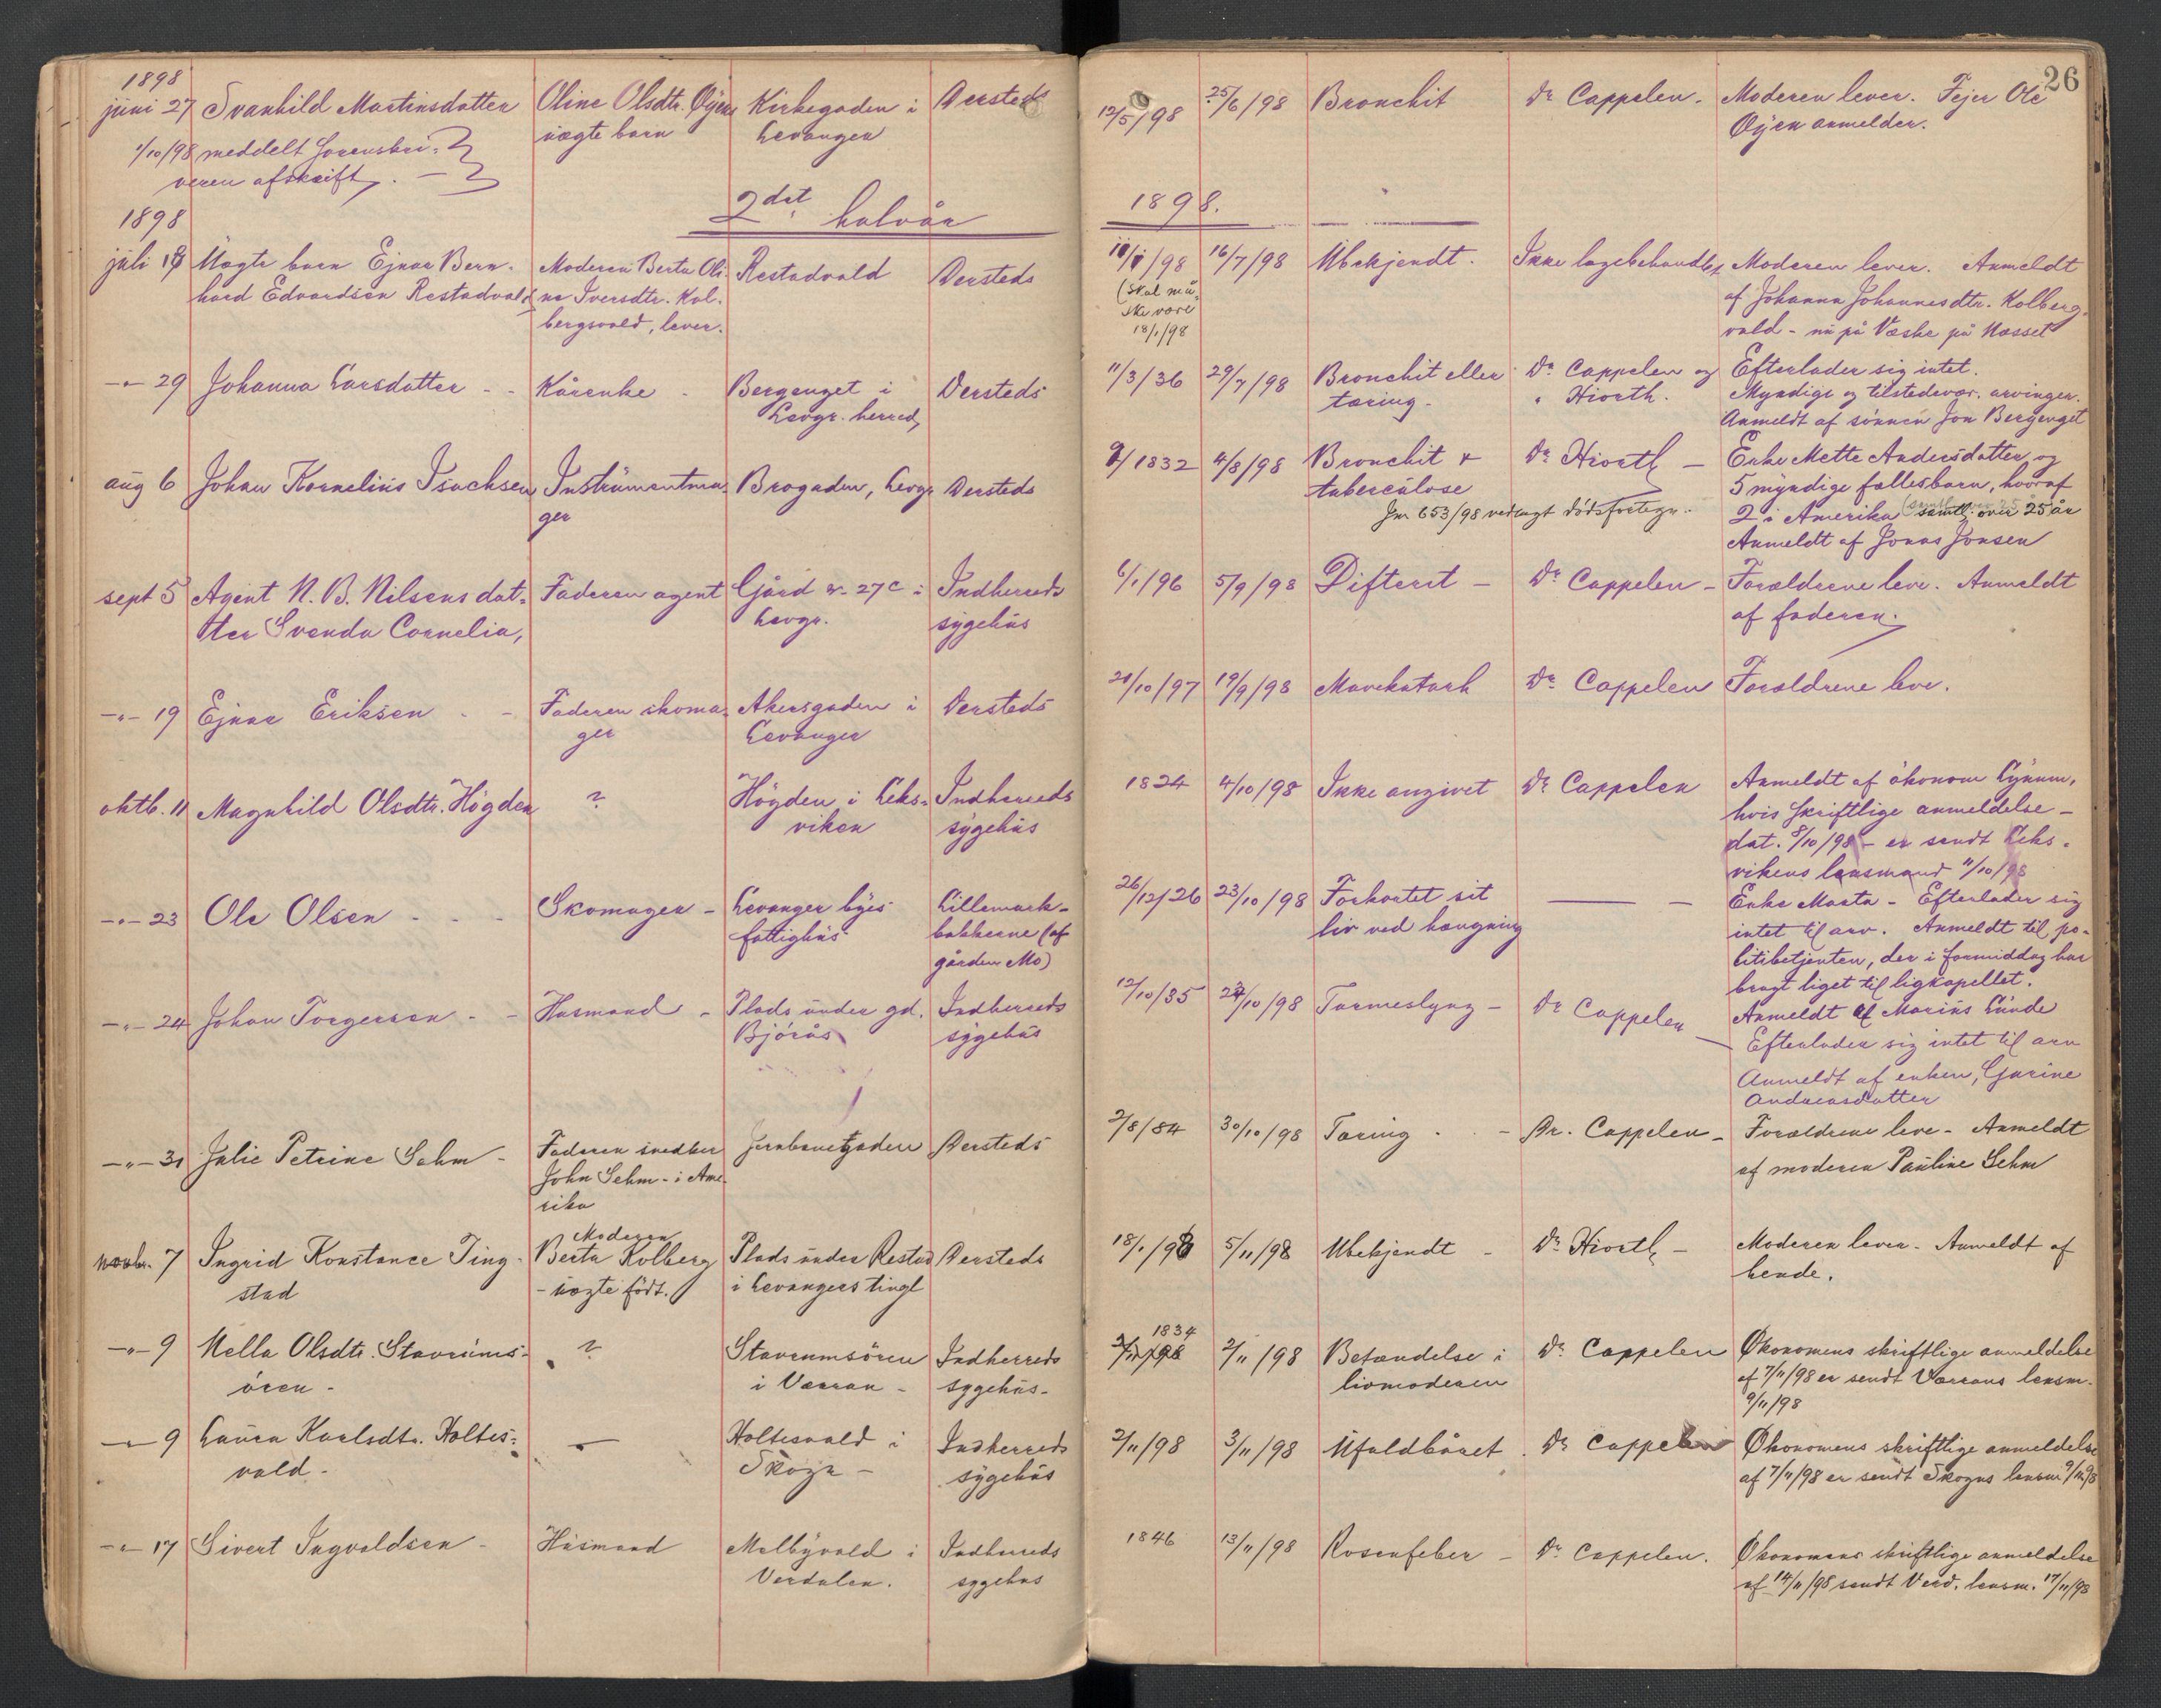 26
1898
juni 27 Svanhild Martinsdatter Oline Olsdtr. Øyen Kirkegaden i Dersteds 12/5/98 25/6/98 Bronchit Dr Cappelen. Moderen lever. Fejer Ole
uægte barn Levanger Øyen anmelder.
1/10/98 meddelt Sorenskri-
veren afskrift.
2det halvår 1898.
1898
juli 18 Uægte barn Ejnar Bern- Moderen Berta Oli- Restadvald Dersteds 18/1/98 16/7/98 Ubekjendt. Ikke lægebehandlet Moderen lever. Anmeldt
hard Edvardsen Restadvald ne Iversdtr. Kol- (skal må- af Johanna Johannesdtr. Kolberg-
bergsvald, lever. ske være vald - nu på Væske på Næsset
18/1/98
-"- 29 Johanna Larsdatter - - Kårenke - Bergenget i Dersteds 11/3/36 29/7/98 Bronchit eller Dr Cappelen og Efterlader sig intet.
Levgr. herred, tæring. " Hiorth. Myndige og tilstedevær. arvinger.
Anmeldt af sønnen Jon Bergenget
aug 6 Johan Kornelius Isachsen Instrumentma- Brogaden, Levgr Dersteds 9/1832 4/8/98 Bronchit + Dr Hiorth - Enke Mette Andersdatter og
ger tuberculose 5 myndige fællesbarn, hvoraf
Jnr 653/98 vedlagt dødsfortegn. 2 i Amerika samtl. over 25 år
Anmeldt af Jonas Jonsen
sept 5 Agent N. B. Nilsens dat- Faderen agent Gård nr 27c i Indherreds 6/1/96 5/9/98 Difterit - Dr Cappelen - Forældrene leve. Anmeldt
ter Svenda Cornelia, Levgr. sygehus af faderen.
-"- 19 Ejnar Eriksen - - Faderen skoma- Akersgaden i Dersteds 21/10/97 19/9/98 Mavekatarh Dr Cappelen Forældrene leve.
ger Levanger
oktb. 11 Magnhild Olsdtr. Högden ? Högden i Leks- Indherreds 1824 4/10/98 Ikke angivet Dr Cappelen Anmeldt af økonom Lynum,
viken sygehus hvis skriftlige anmeldelse -
dat. 8/10/98 - er sendt Leks-
vikens lensmand 11/10/98
-"- 23 Ole Olsen - - - Skomager - Levanger byes Lillemark- 26/12/26 23/10/98 Forkortet sit Enke Marta - Efterlader sig
fattighus bakkerne (af liv ved hængning intet til arv. Anmeldt til po-
gården Mo) litibetjenten, der i formiddag har
bragt liget til ligkapellet.
-"- 24 Johan Torgersen - - Husmand - Plads under gd. Indherreds 12/10/35 23/10/98 Tarmeslyng - Dr Cappelen Anmeldt af Marius Lunde
Bjørås sygehus Efterlader sig intet til arv
Anmeldt af enken, Gurine
Andreasdatter
-"- 31 Julie Petrine Sehm - Faderen snedker Jernbanegaden Dersteds 2/8/84 30/10/98 Tæring - - Dr. Cappelen - Forældrene leve - Anmeldt
John Sehm - i Ame- af moderen Pauline Sehm
rika
novbr. 7 Ingrid Konstance Ting- Moderen Plads under Restad Dersteds 18/1/98 5/11/98 Ubekjendt - Dr Hiorth - Moderen lever - Anmeldt af
stad Berta Kolberg i Levangers tingl hende.
- uægte født.
-"- 9 Mella Olsdtr. Stavrums- ? Stavrumsören Indherreds 1834 2/11/98 Betændelse i Dr Cappelen Økonomens skriftlige anmeldelse
ören - i Værran - sygehus - livmoderen af 7/11/98 er sendt Værrans lensm.
9/11/98
-"- 9 Laura Karlsdtr. Holtes- - Holtesvald i Indherreds 2/11/98 3/11/98 Ufuldbåret . Dr Cappelen Økonomens skriftlige anmeldelse
vald - Skogn - sygehus af 7/11/98 er sendt Skogns lensm 9/11/98
-"- 17 Sivert Ingvaldsen - Husmand Melbyvald i Indherreds 1846 13/11/98 Rosenfeber - Dr Cappelen. Økonomens skriftlige anmeldelse
Verdalen. sygehus af 14/11/98 sendt Verd. lensm. 17/11/98